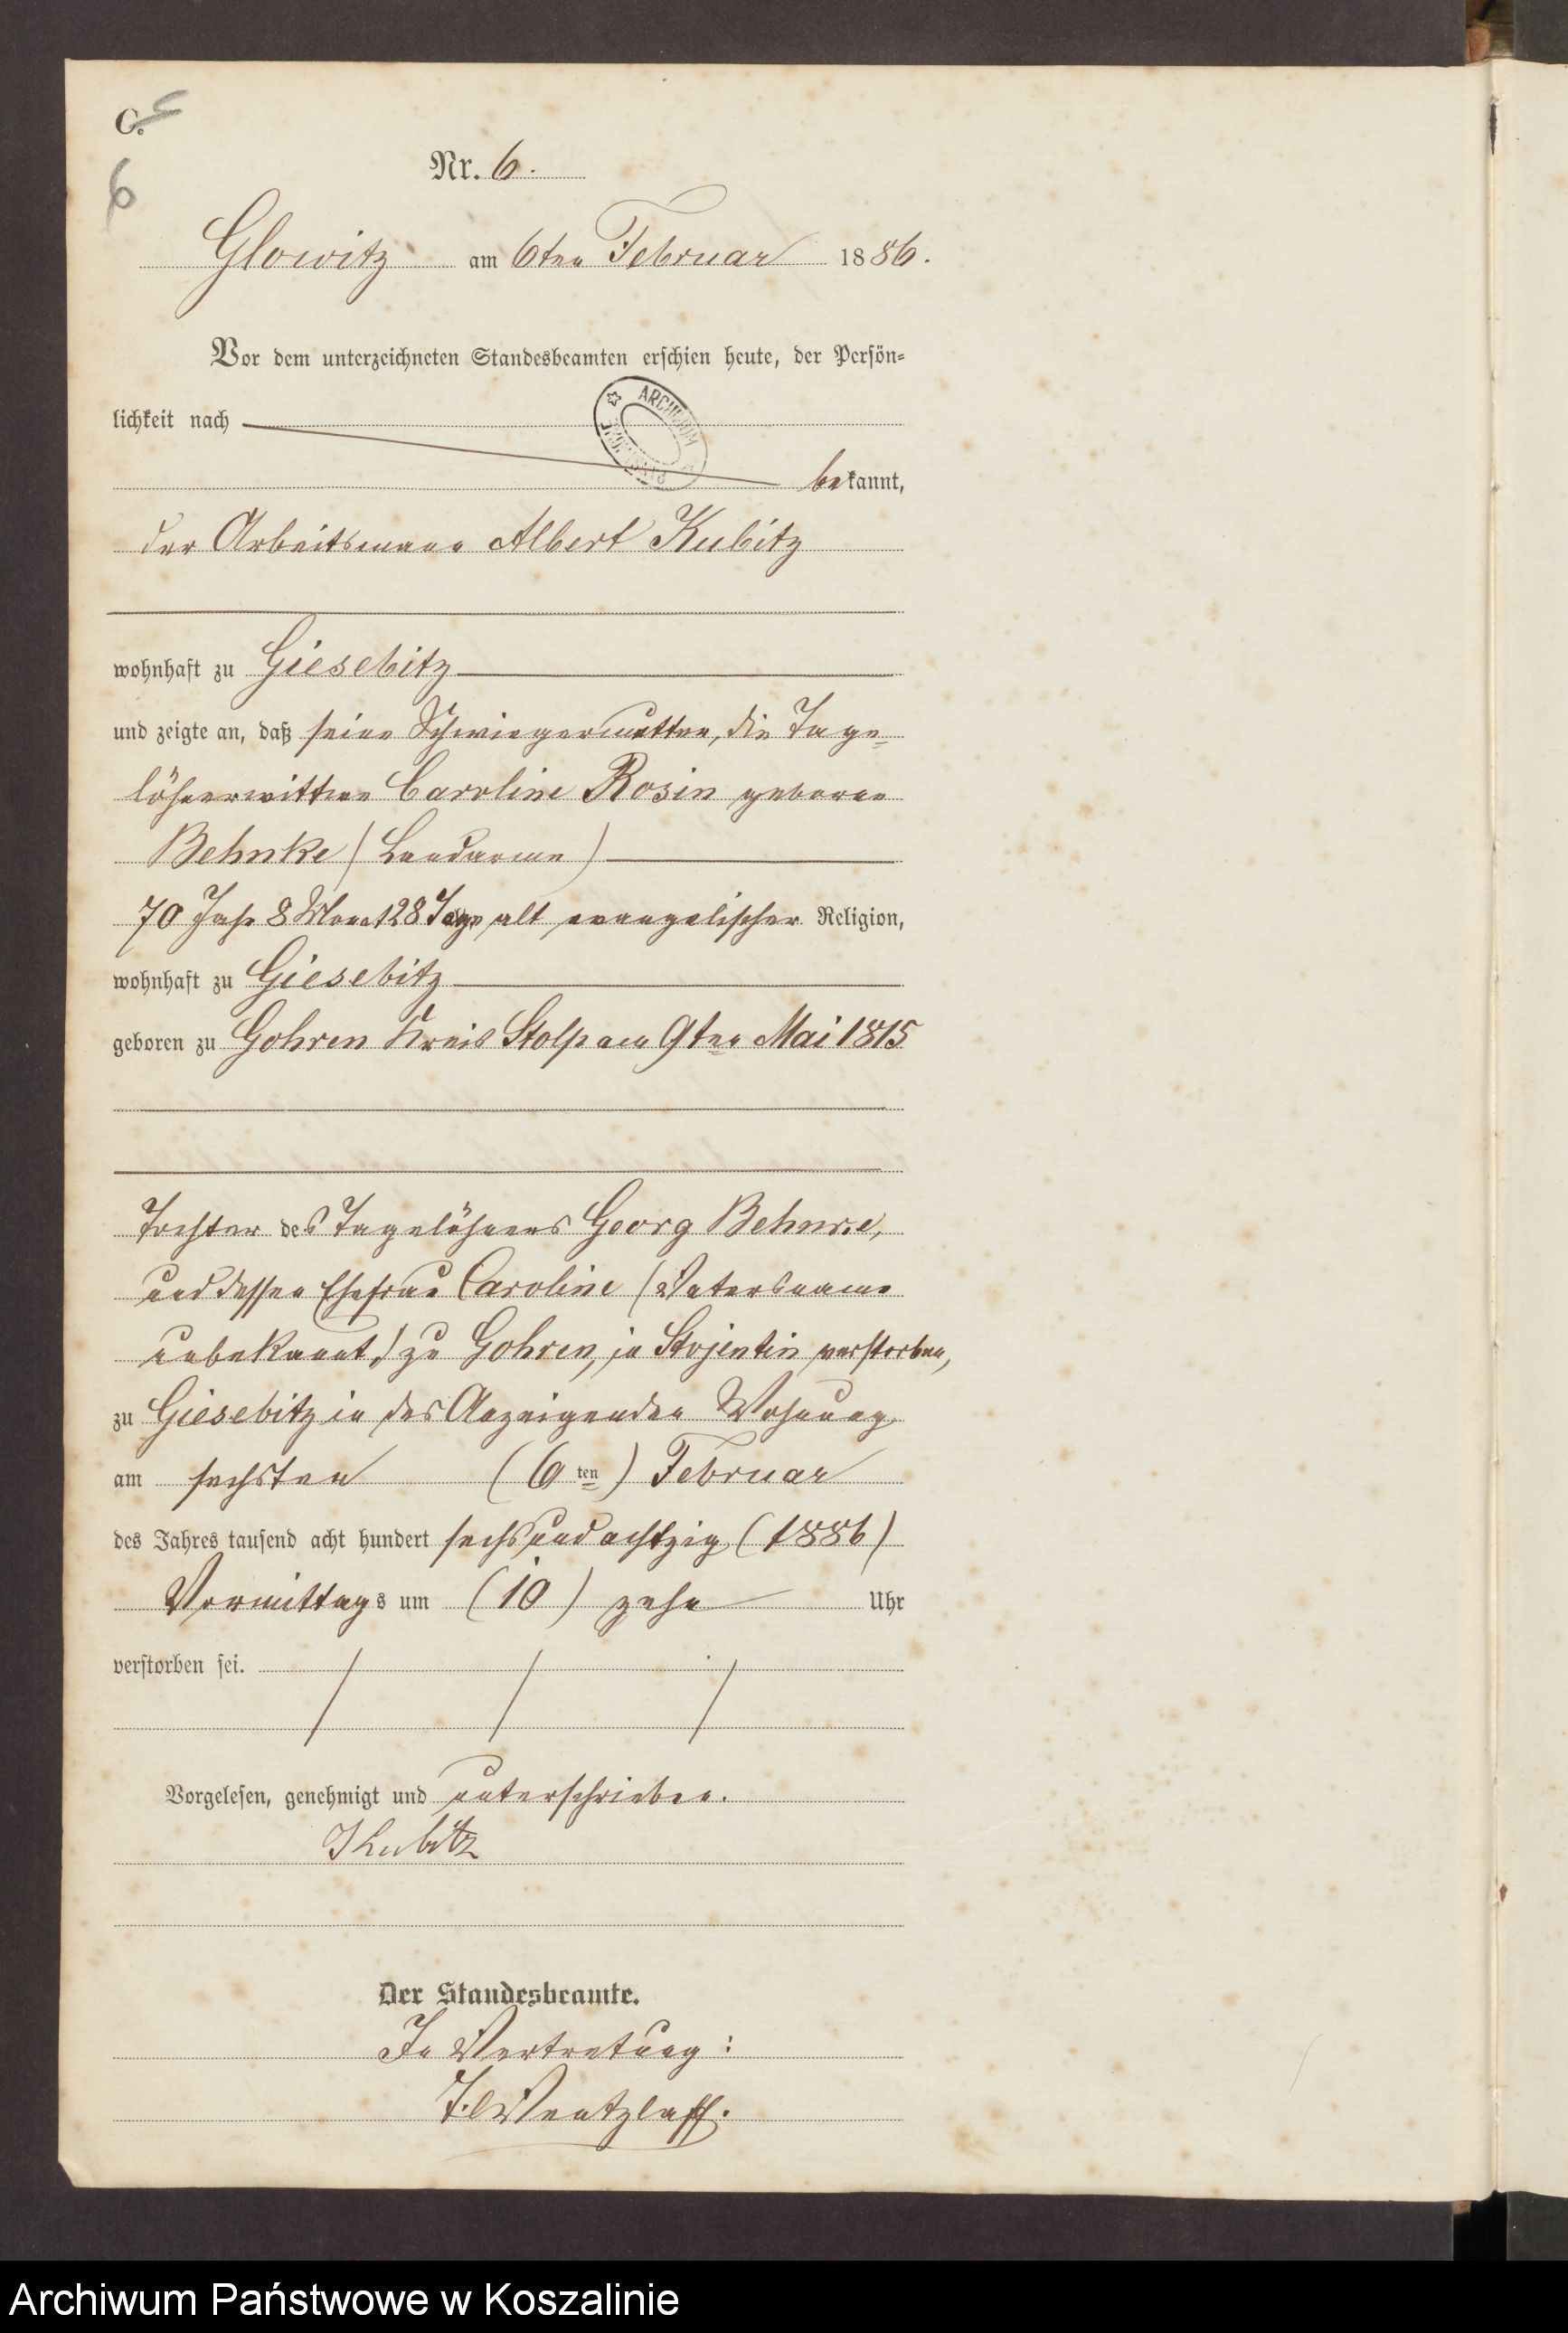 C.
6
Nr. 6.
Glowitz am 6ten Februar 1886.
Vor dem unterzeichneten Standesbeamten erschien heute, der Persön-
lichkeit nach
ARCHIWUM
bekannt,
der Arbeitsmann Albert Kubitz
wohnhaft zu Giesebitz
und zeigte an, daß seine Schwiegermutter, die Tage-
löhnerwittwe Caroline Rosin geborne
Behnke (Landarme)
70 Jahr 8 Monat 28 Tage alt evangelischer Religion,
wohnhaft zu Giesebitz
geboren zu Gohren Kreis Stolp am 9ten Mai 1815
Tochter des Tagelöhners Georg Behnke,
und dessen Ehefrau Caroline (Vatersname
unbekannt,) zu Gohren, in Stojentin verstorben,
zu Giesebitz in des Anzeigenden Wohnung
am sechsten (6ten) Februar
des Jahres tausend acht hundert sechs und achtzig (1886)
Vormittags um (10) zehn Uhr
verstorben sei.
Vorgelesen, genehmigt und unterschrieben.
Kubitz
Der Standesbeamte.
In Vertretung:
Wentzlaff.
Archiwum Państwowe w Koszalinie